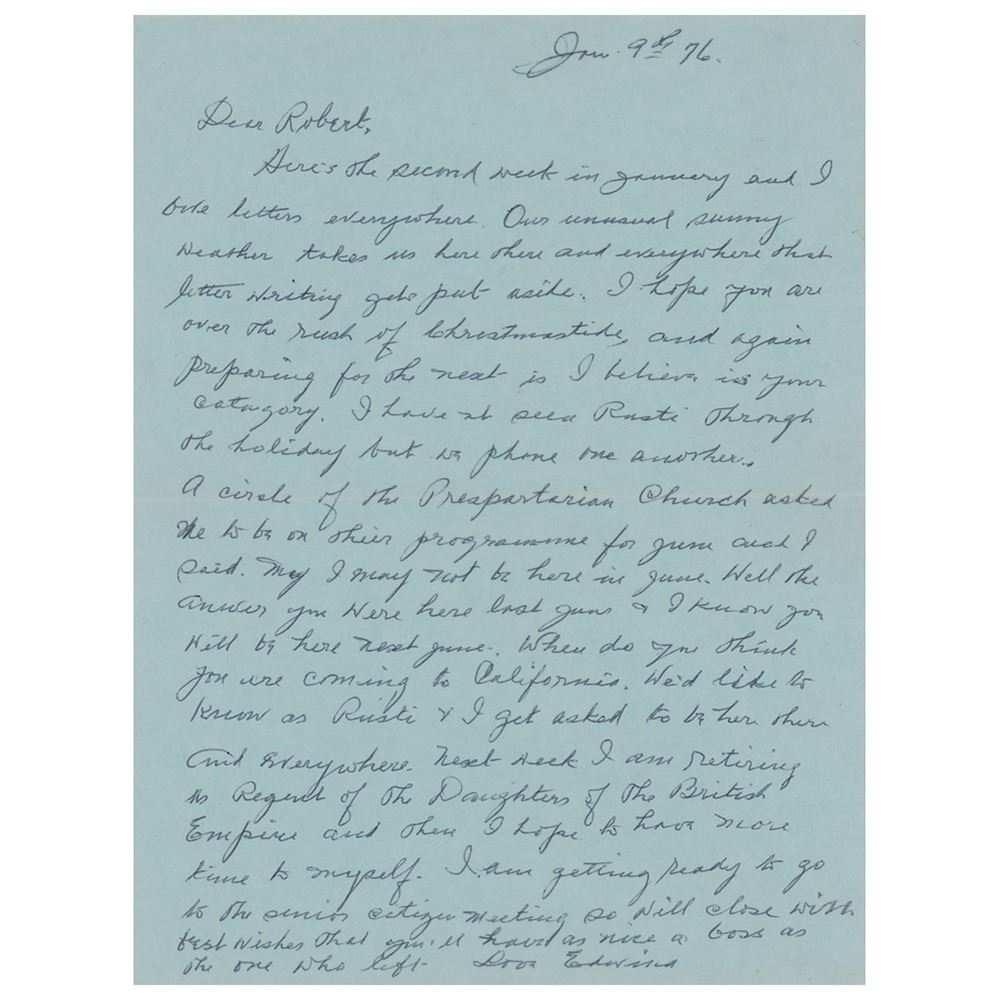 Jan. 9th 76.
Dear Robert,
Here's the second week in january and I
owe letters everywhere. Our unusual sunny
weather takes us here there and everywhere that
letter writing gets put aside. I hope you are
over the rush of Christmastide, and again
preparing for the next is I believe in your
catagory. I have nt seen Rusti through
the holiday but we phone one another.
A circle of the Prespartarian Church asked
me to be on their programme for june and I
said. May I may not be here in june. Well the
answer you were here last june & I know you
will be here next june. When do you think
you are coming to California. We'd like to
know as Rusti & I get asked to be here there
and everywhere. Next week I am retiring
as Regent of the Daughters of the British
Empire and then I hope to have more
time to myself. I am getting ready to go
to the senior citizen meeting so will close with
best wishes that you'll have as nice a boss as
the one who left Love Edwina